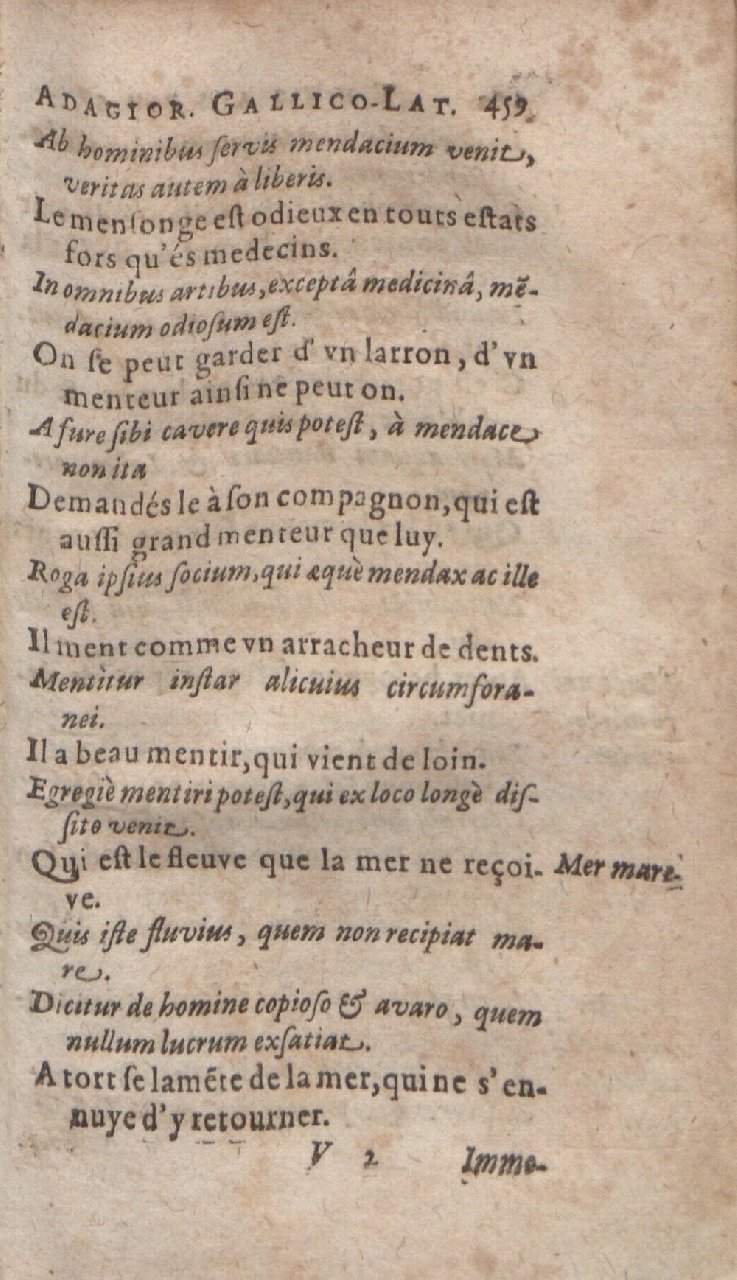 ADAGIOR. GALLICO-LAT. 459
Ab hominibus ſervis mendacium venit,
veritas autem à liberis.
Le menſonge eſt odieux en touts eſtats
fors qu'és medecins.
In omnibus artibus, exceptâ medicinâ, mẽ-
dacium odioſum eſt.
On ſe peut garder d' vn larron, d'vn
menteur ainſi ne peut on.
A fure ſibi cavere quis poteſt, à mendace
non ita
Demandés le à ſon compagnon, qui eſt
auſſi grand menteur que luy.
Roga ipſius ſocium, qui æquè mendax ac ille
eſt.
Il ment comme vn arracheur de dents.
Mentitur inſtar alicuius circumfora-
nei.
Il a beau mentir, qui vient de loin.
Egregiè mentiri poteſt, qui ex loco longè diſ-
ſito venit.
Qui eſt le fleuve que la mer ne reçoi-
ve.
Mer mare.
Quis iſte fluvius, quem non recipiat ma-
re.
Dicitur de homine copioſo & avaro, quem
nullum lucrum exſatiat.
A tort ſe lamẽte de la mer, qui ne s'en-
nuye d'y retourner.
V 2 Imme-